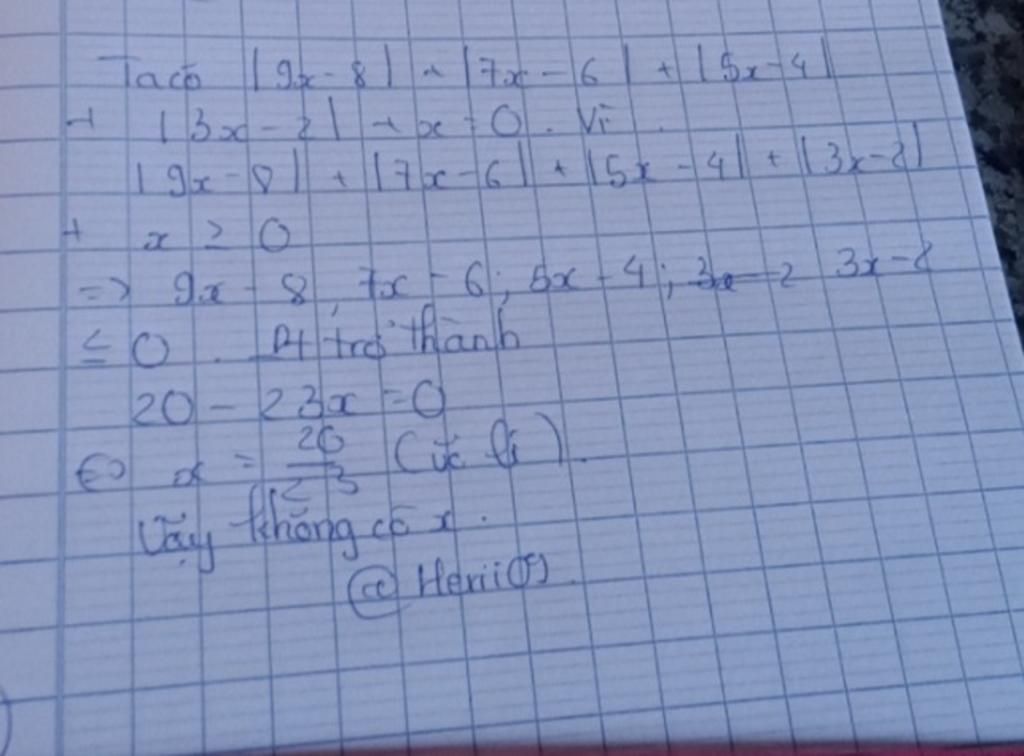 Ta có |9x - 8| + |7x - 6| + |5x - 4|
+ |3x - 2| + x = 0. Vì
|9x - 8| + |7x - 6| + |5x - 4| + |3x - 2|
+ x ≥ 0
=> 9x - 8, 7x - 6; 5x - 4; 3x - 2
≤ 0. Pt trở thành
20 - 23x = 0
<=> x = 20/23
Vậy không có x.
@ Herii